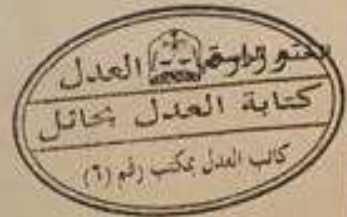 العدل
كتابة العدل بحائل
كاتب العدل بمكتب رقم (٦)